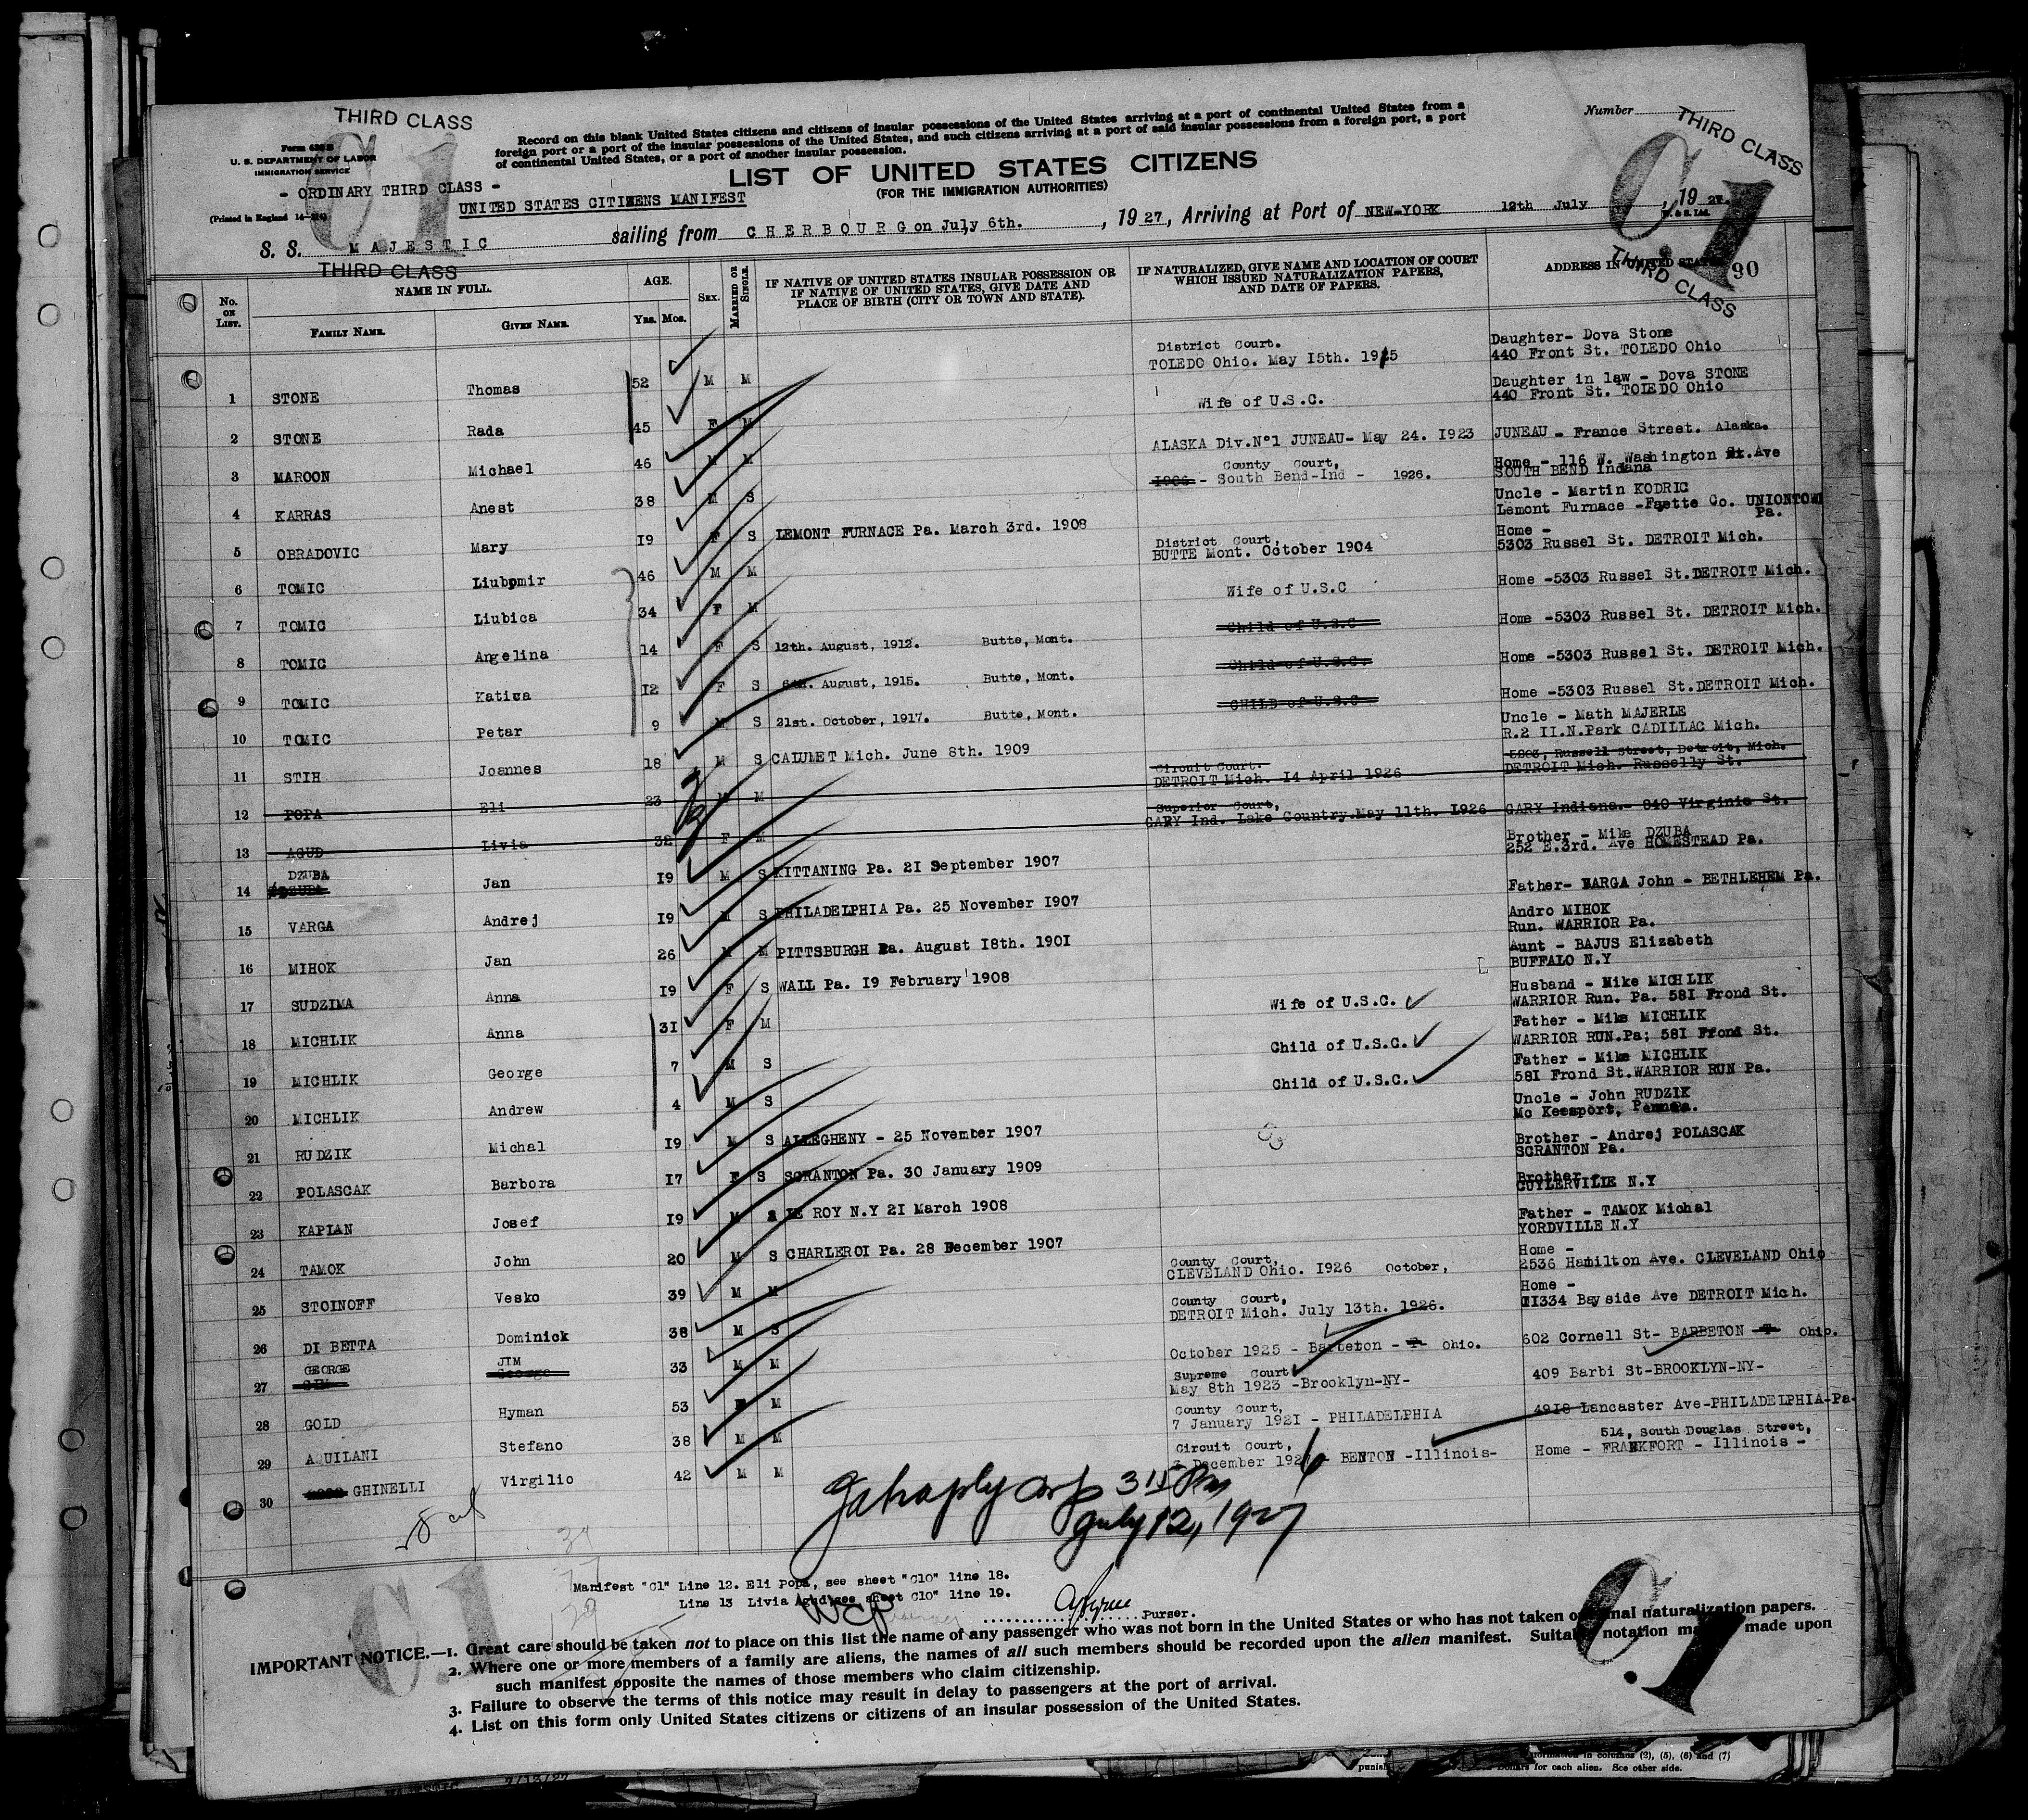 THIRD CLASS
Form 630 B
U. S. DEPARTMENT OF LABOR
IMMIGRATION SERVICE
- ORDINARY THIRD CLASS -
(Printed in England
UNITED STATES CITIZENS MANIFEST
C1
Record on this blank United States citizens and citizens of insular possessions of the United States arriving at a port of continental United States from a
foreign port or a port of the insular possessions of the United States, and such citizens arriving at a port of said insular possessions from a foreign port, a port
of continental United States, or a port of another insular possession.
LIST OF UNITED STATES CITIZENS
(FOR THE IMMIGRATION AUTHORITIES)
Number
THIRD CLASS
C.1
S. S. MAJESTIC sailing from CHERBOURG on July 6th. , 19 27, Arriving at Port of NEW-YORK 12th July , 19 27.
THIRD CLASS
THIRD CLASS
90
No. ON LIST.
NAME IN FULL.
FAMILY NAME. GIVEN NAME.
AGE.
YRS. MOS.
SEX.
MARRIED OR SINGLE.
IF NATIVE OF UNITED STATES INSULAR POSSESSION OR
IF NATIVE OF UNITED STATES, GIVE DATE AND
PLACE OF BIRTH (CITY OR TOWN AND STATE).
IF NATURALIZED, GIVE NAME AND LOCATION OF COURT
WHICH ISSUED NATURALIZATION PAPERS,
AND DATE OF PAPERS.
ADDRESS IN UNITED STATES
1 STONE Thomas 52 M M District Court. TOLEDO Ohio. May 15th. 1925 Daughter- Dova Stone 440 Front St. TOLEDO Ohio
2 STONE Rada 45 F M Wife of U.S.C. Daughter in law - Dova STONE 440 Front St. TOLEDO Ohio
3 MAROON Michael 46 M M ALASKA Div.N°1 JUNEAU- May 24. 1923 JUNEAU - France Street. Alaska.
4 KARRAS Anest 38 M S County Court, 1906 - South Bend-Ind - 1926. Home - 116 W. Washington St. Ave SOUTH BEND Indiana
5 OBRADOVIC Mary 19 F S LEMONT FURNACE Pa. March 3rd. 1908 Uncle - Martin KODRIC Lemont Furnace -Fayette Co. UNIONTOWN Pa.
6 TOMIC Liubomir 46 M M District Court, BUTTE Mont. October 1904 Home - 5303 Russel St. DETROIT Mich.
7 TOMIC Liubica 34 F M Wife of U.S.C Home -5303 Russel St.DETROIT Mich.
8 TOMIC Angelina 14 F S 12th. August, 1912. Butte, Mont. Child of U.S.C Home -5303 Russel St. DETROIT Mich.
9 TOMIC Katica 12 F S 6th. August, 1915. Butte, Mont. Child of U.S.C. Home -5303 Russel St. DETROIT Mich.
10 TOMIC Petar 9 M S 21st. October, 1917. Butte, Mont. CHILD of U.S.C Home -5303 Russel St.DETROIT Mich.
11 STIH Joannes 18 M S CALUMET Mich. June 8th. 1909 Uncle - Math MAJERLE R.2 II.N.Park CADILLAC Mich.
12 POPA Eli 23 M M Circuit Court. DETROIT Mich. 14 April 1926 5903, Russell Street, Detroit, Mich. DETROIT Mich. Russelly St.
13 AGUD Livia 32 F M Superior Court, GARY Ind. Lake Country.May 11th. 1926 GARY Indiana.- 840 Virginia St.
14 DZUBA Jan 19 M S KITTANING Pa. 21 September 1907 Brother - Mike DZUBA 252 E.3rd. Ave HOMESTEAD Pa.
15 VARGA Andrej 19 M S PHILADELPHIA Pa. 25 November 1907 Father- VARGA John - BETHLEHEM Pa.
16 MIHOK Jan 26 M M PITTSBURGH Pa. August 18th. 1901 Andro MIHOK Run. WARRIOR Pa.
17 SUDZIMA Anna 19 F S WALL Pa. 19 February 1908 Aunt - BAJUS Elizabeth BUFFALO N.Y
18 MICHLIK Anna 31 F M Wife of U.S.C. Husband - Mike MICHLIK WARRIOR Run. Pa. 581 Frond St.
19 MICHLIK George 7 M S Child of U.S.C. Father - Mike MICHLIK WARRIOR RUN.Pa; 581 Frond St.
20 MICHLIK Andrew 4 M S Child of U.S.C. Father - Mike MICHLIK 581 Frond St.WARRIOR RUN Pa.
21 RUDZIK Michal 19 M S ALLEGHENY - 25 November 1907 Uncle - John RUDZIK Mc Keesport, Penna.
22 POLASCAK Barbora 17 F S SCRANTON Pa. 30 January 1909 Brother - Andrej POLASCAK SCRANTON Pa.
23 KAPLAN Josef 19 M S LE ROY N.Y 21 March 1908 Brother - CUYLERVILLE N.Y
24 TAMOK John 20 M S CHARLEROI Pa. 28 December 1907 Father - TAMOK Michal YORDVILLE N.Y
25 STOINOFF Vesko 39 M M County Court, CLEVELAND Ohio. 1926 October, Home - 2536 Hamilton Ave. CLEVELAND Ohio
26 DI BETTA Dominick 38 M S County Court, DETROIT Mich. July 13th. 1926. Home - 11334 Bayside Ave DETROIT Mich.
27 GEORGE JIM George 33 M M October 1925 - Barbeton - Ohio. 602 Cornell St- BARBETON - Ohio.
28 GOLD Hyman 53 M Supreme Court May 8th 1923 -Brooklyn-NY- 409 Barbi St-BROOKLYN-NY-
29 AQUILANI Stefano 38 M M County Court, 7 January 1921 - PHILADELPHIA 4918 Lancaster Ave-PHILADELPHIA-Pa-
30 GHINELLI Virgilio 42 M M Circuit Court, December 1926 - BENTON -Illinois- 514, South Douglas Street, Home - FRANKFORT - Illinois -
July 12, 1927
Manifest "C1" Line 12. Eli Popa, see sheet "C10" line 18.
Line 13 Livia Agud see sheet C10" line 19.
Purser.
C.1
C.1
IMPORTANT NOTICE.—1. Great care should be taken not to place on this list the name of any passenger who was not born in the United States or who has not taken original naturalization papers.
2. Where one or more members of a family are aliens, the names of all such members should be recorded upon the alien manifest. Suitable notation made upon
such manifest opposite the names of those members who claim citizenship.
3. Failure to observe the terms of this notice may result in delay to passengers at the port of arrival.
4. List on this form only United States citizens or citizens of an insular possession of the United States.
information in columns (2), (5), (6) and (7)
for each alien. See other side.